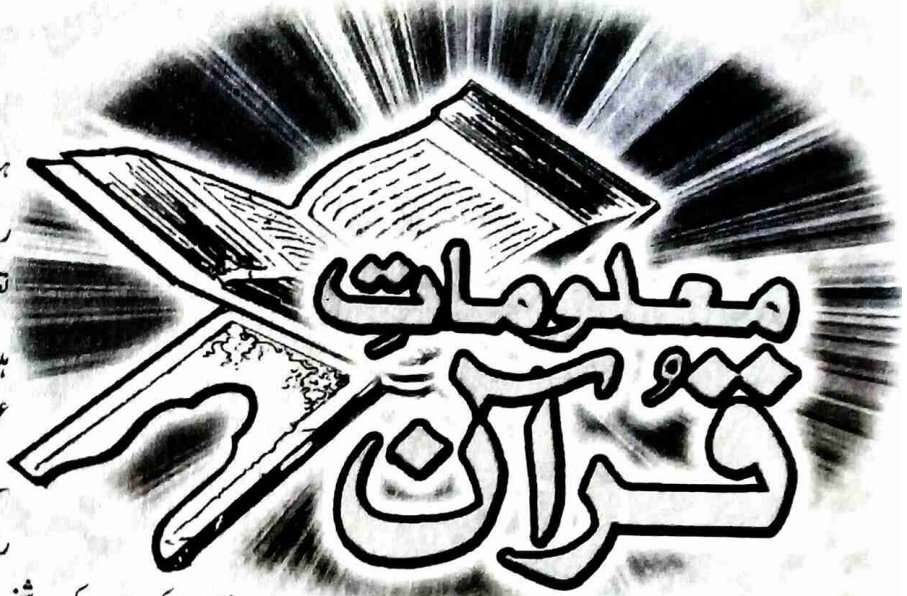 معلوماتِ
قُرآن